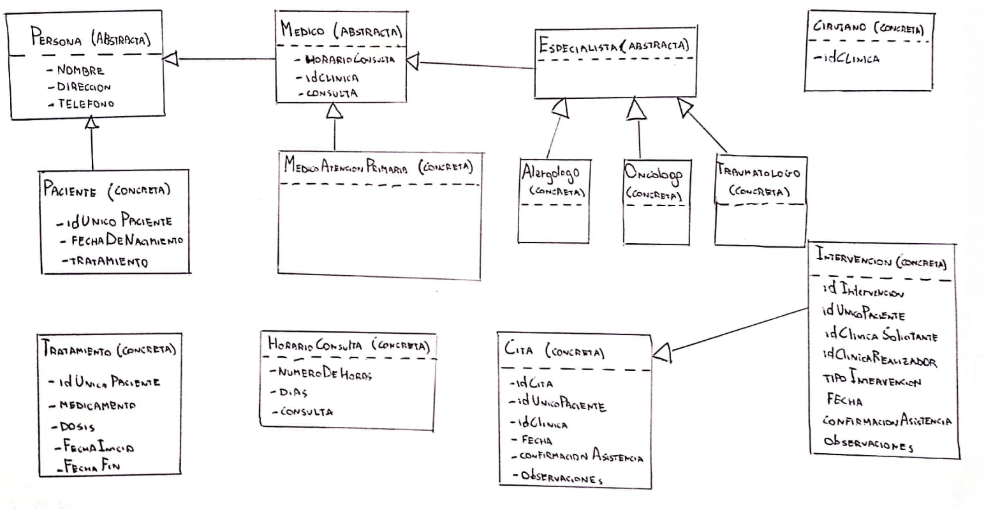 PERSONA (ABSTRACTA)
- NOMBRE
- DIRECCION
- TELEFONO
MEDICO (ABSTRACTA)
- HORARIOCONSULTA
- idCLINICA
- CONSULTA
ESPECIALISTA (ABSTRACTA)
CIRUJANO (CONCRETA)
- idCLINICA
PACIENTE (CONCRETA)
- idUNICO PACIENTE
- FECHADENACIMIENTO
- TRATAMIENTO
MEDICOATENCIONPRIMARIA (CONCRETA)
Alergologo
(CONCRETA)
Oncologo
(CONCRETA)
TRAUMATOLOGO
(CONCRETA)
INTERVENCION (CONCRETA)
id INTERVENCION
id UNICOPACIENTE
idClinica Solicitante
idClinicaREALIZADOR
TIPO INTERVENCION
FECHA
CONFIRMACION ASISTENCIA
OBSERVACIONES
TRATAMIENTO (CONCRETA)
- idUNICO PACIENTE
- MEDICAMENTO
- DOSIS
- FECHAINICIO
- FECHA FIN
HORARIO CONSULTA (CONCRETA)
- NUMERODEHORAS
- DIAS
- CONSULTA
CITA (CONCRETA)
- idCITA
- idUNICOPACIENTE
- idCLINICA
- FECHA
- CONFIRMACION ASISTENCIA
- OBSERVACIONES